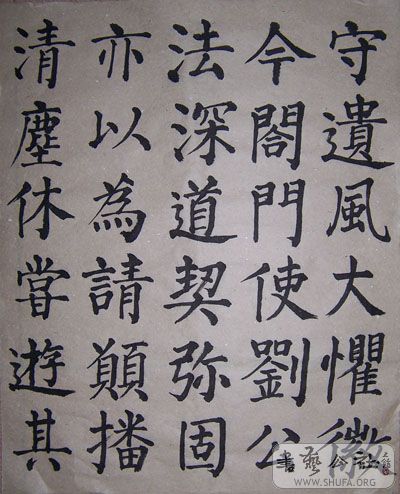 守遺風大懼徽
今閤門使劉公
法深道契弥固
亦以為請願播
清塵休甞遊其
書藝公社
WWW.SHUFA.ORG